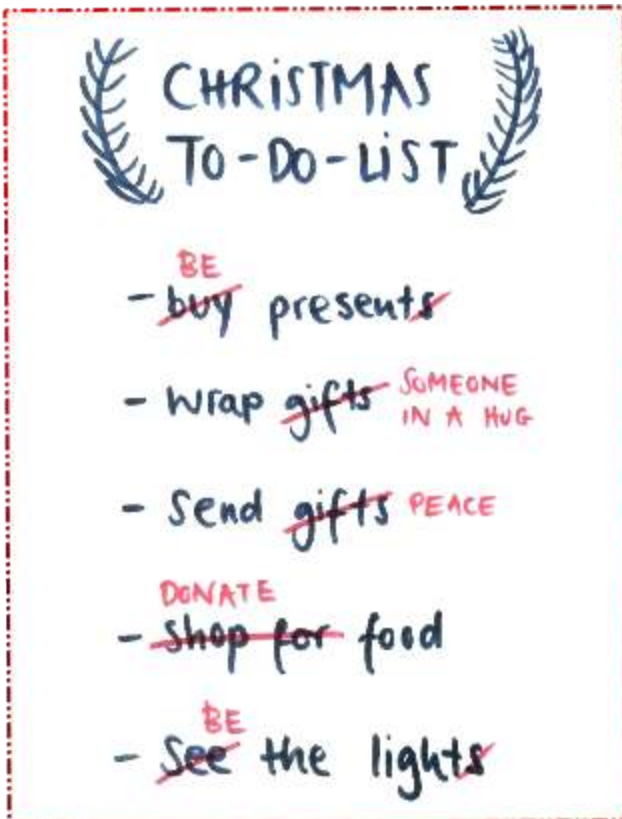 CHRISTMAS
TO-DO-LIST
BE
- buy presents
- wrap gifts SOMEONE
IN A HUG
- Send gifts PEACE
DONATE
- Shop for food
BE
- See the lights